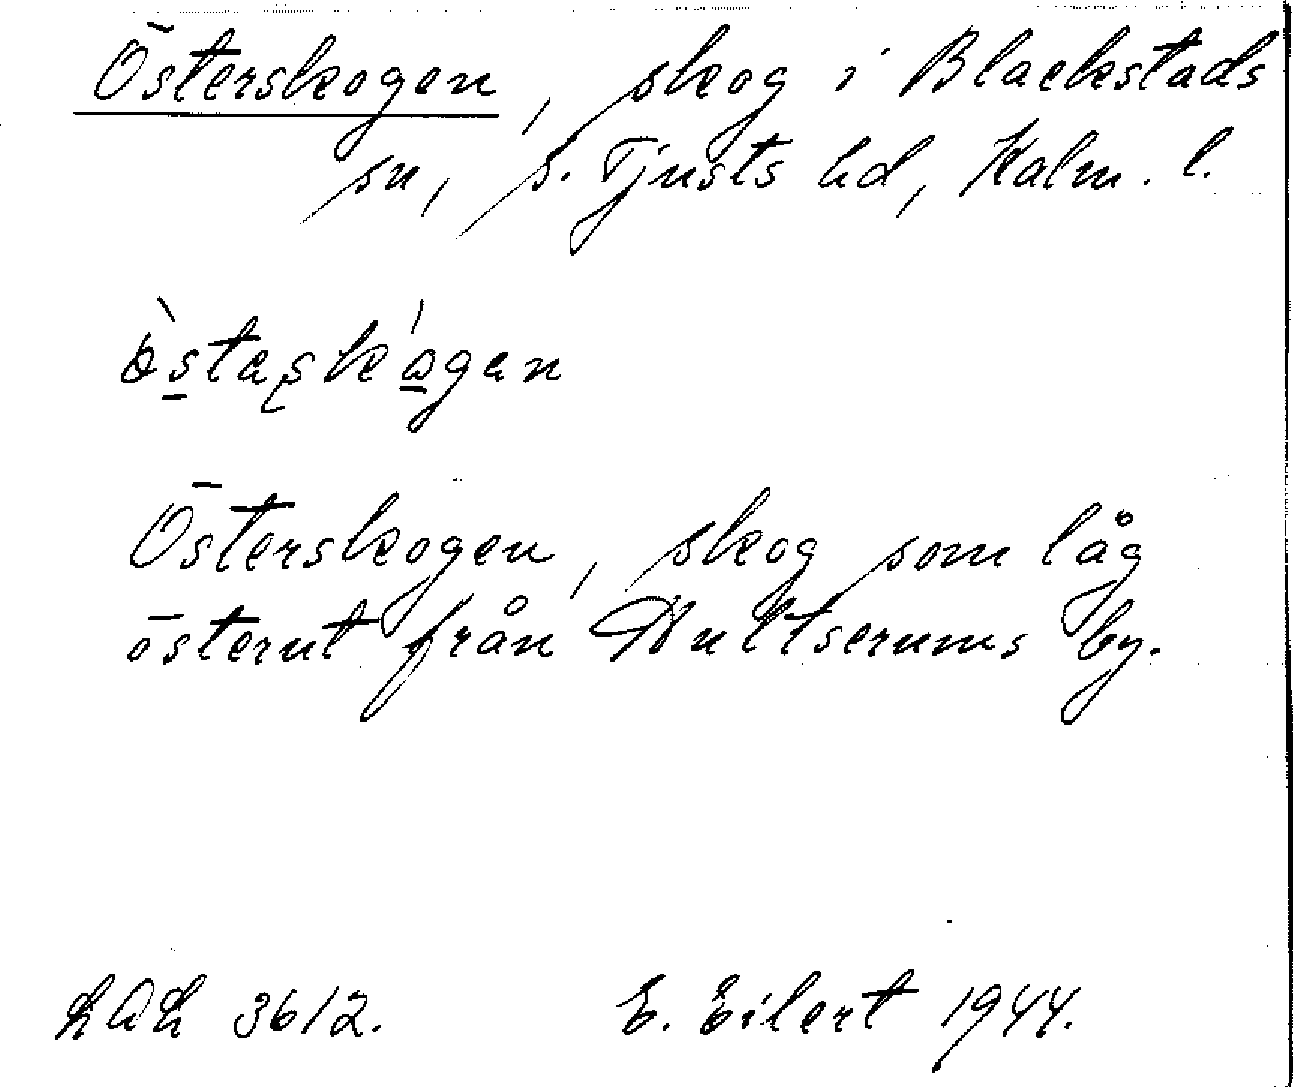 Österskogen, skog i Blackstads
sn, S. Tjusts hd, Kalm. l.
Österskogen, skog som låg
österut från Hultserums by.
3612. E. Eilert 1944.